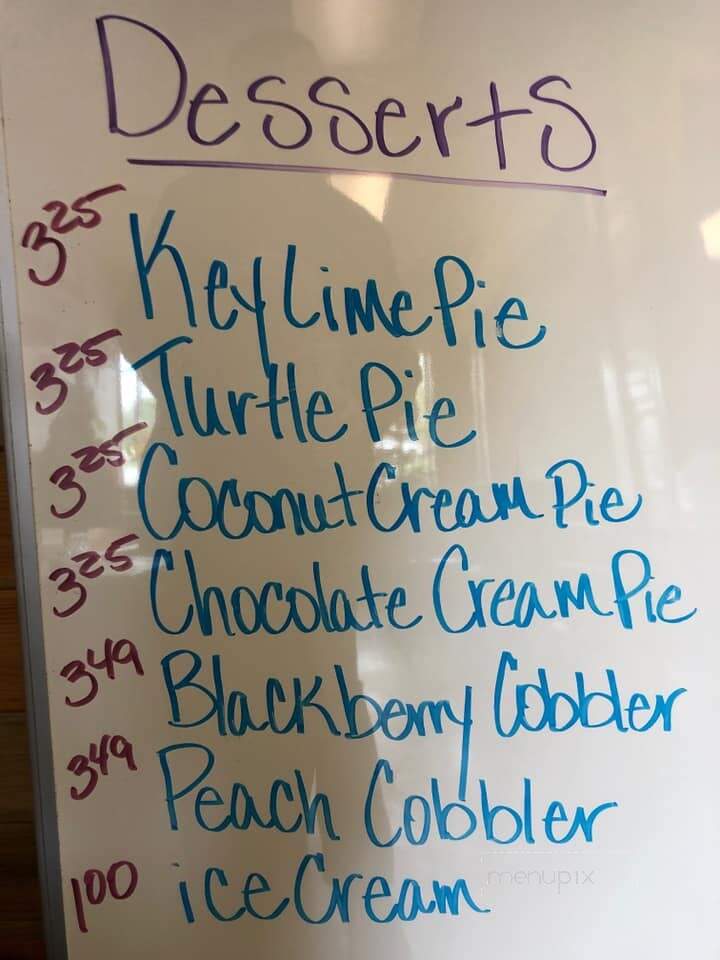 Desserts
3.25 Key Lime Pie
3.25 Turtle Pie
3.25 Coconut Cream Pie
3.25 Chocolate Cream Pie
349 Blackberry Cobbler
349 Peach Cobbler
100 ice Cream
menupix